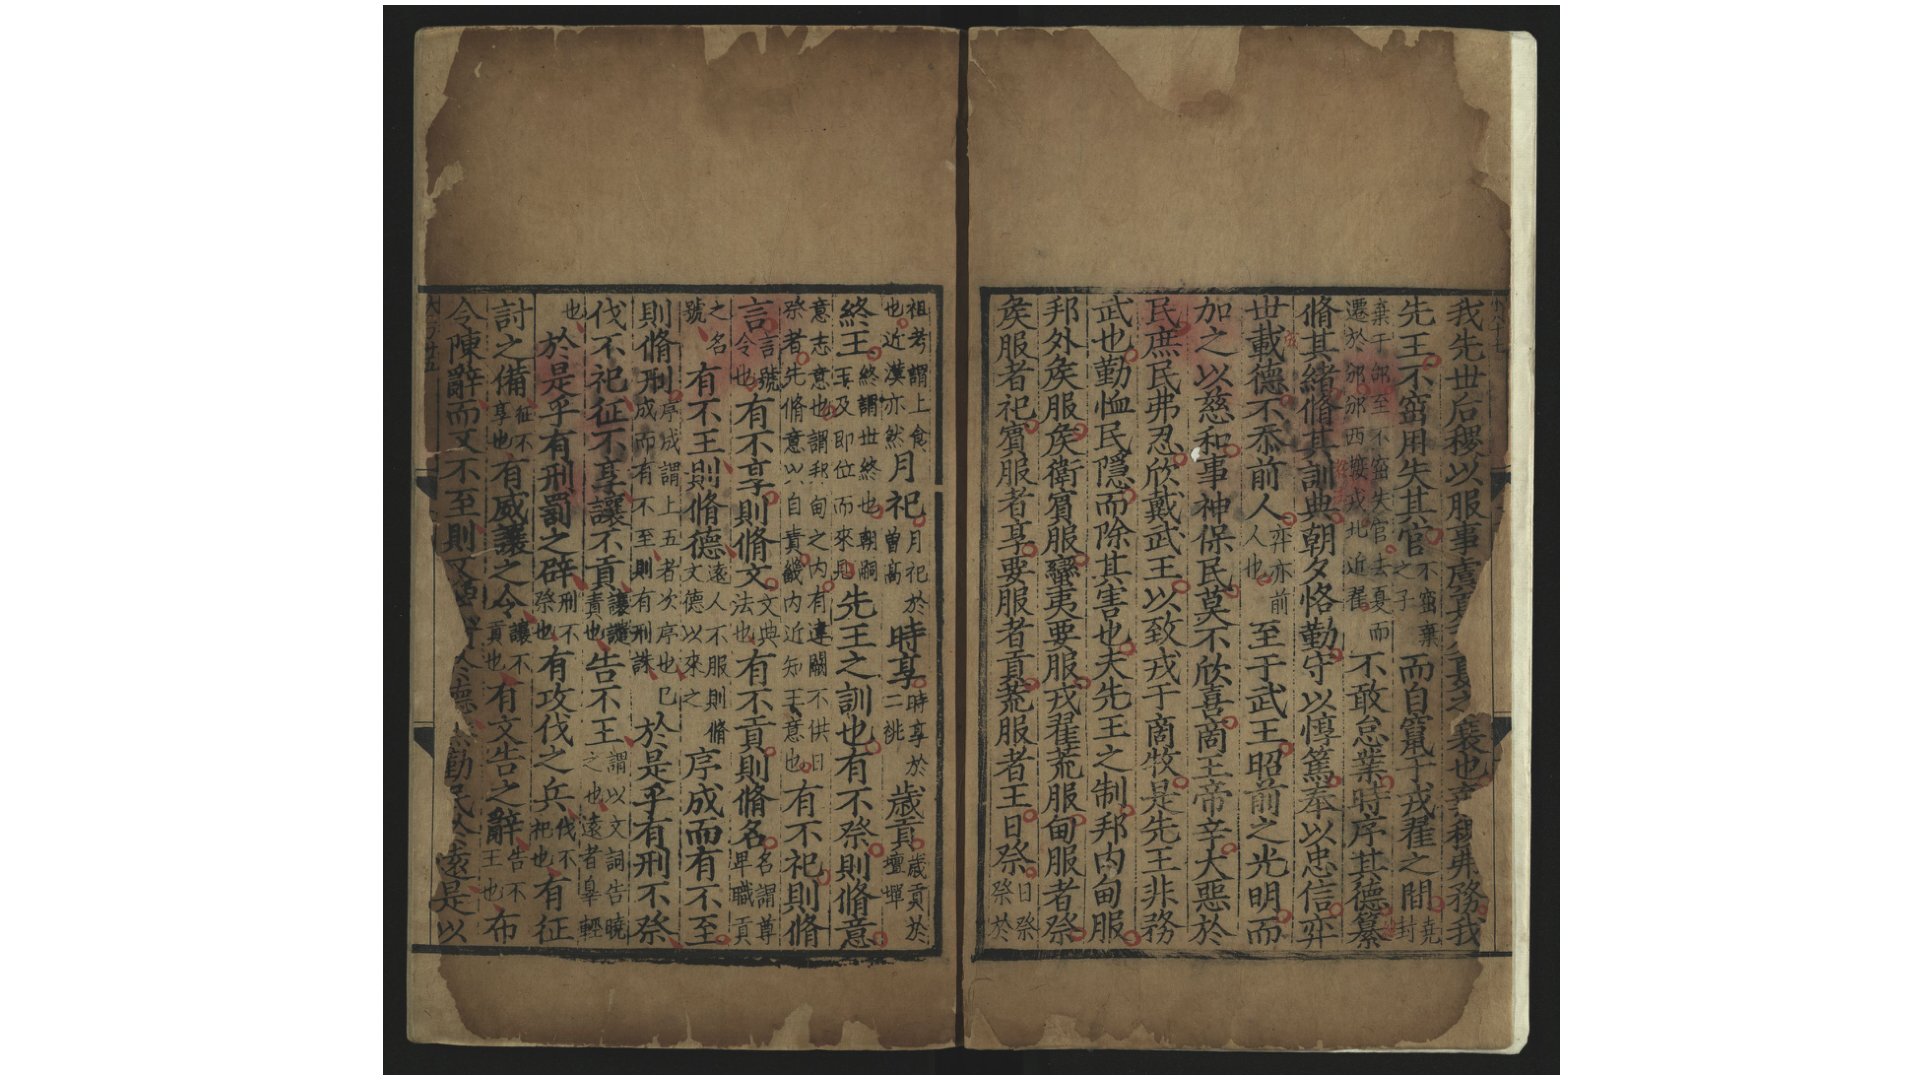 我先世后稷以服事虞夏之衰也棄稷弗務我
先王不窋用失其官不窋棄之子而自竄于戎翟之間堯封
棄于邰至不窋失官去夏而遷於邠邠西接戎北近翟不敢怠業時序其德纂
脩其緒脩其訓典朝夕恪勤守以惇篤奉以忠信弈
世載德不忝前人弈亦前人也至于武王昭前之光明而
加之以慈和事神保民莫不欣喜商王帝辛大惡於
民庶民弗忍欣戴武王以致戎于商牧是先王非務
武也勤恤民隱而除其害也夫先王之制邦内甸服
邦外矦服矦衛賓服蠻夷要服戎翟荒服甸服者祭
矦服者祀賓服者享要服者貢荒服者王日祭日祭於
祖考謂上食也近漢亦然月祀月祀於曽髙時享時享於二祧歲貢歲貢於壇墠
終王終謂世終也朝嗣王及即位而來見先王之訓也有不祭則脩意
意志意也謂邦甸之内有違闕不供日祭者先脩意以自責畿内近知王意也有不祀則脩
言言號令也有不享則脩文文典法也有不貢則脩名名謂尊卑職貢
之名號有不王則脩德遠人不服則脩文德以來之序成而有不至
則脩刑序成謂上五者次序也已成而有不至則有刑誅於是乎有刑不祭
伐不祀征不享讓不貢讓譴責也告不王謂以文詞告曉之也遠者辠輕
也於是乎有刑罰之辟刑不祭也有攻伐之兵伐不祀也有征
討之備征不享也有威讓之令讓不貢也有文告之辭告不王也布
令陳辭而又不至則又於德勤民於遠是以